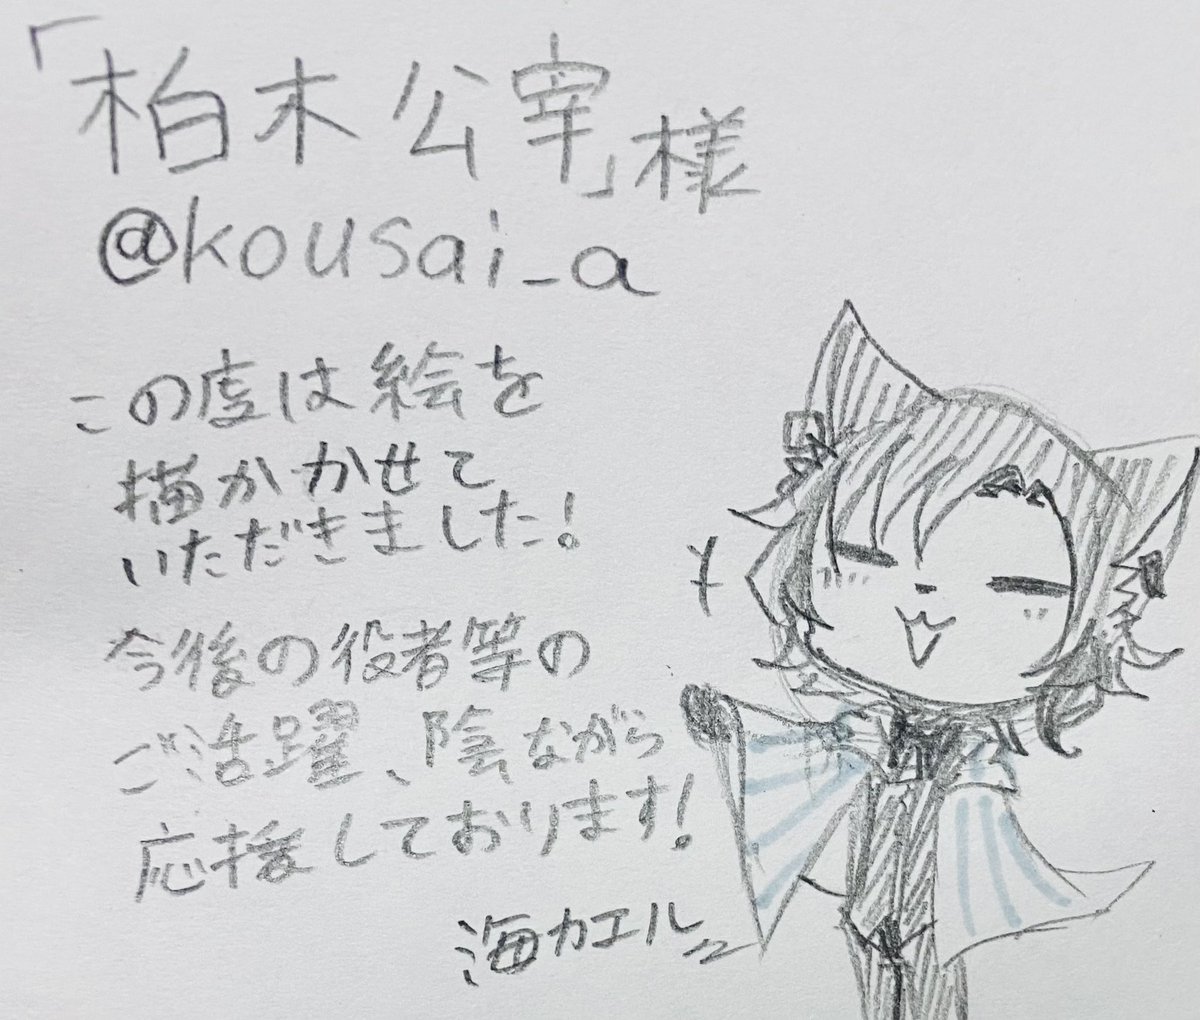 「柏木公宰」様
@kousai_a
この度は絵を
描かかせて
いただきました!
今後の役者等の
ご活躍、陰ながら
応援しております!
海カエル